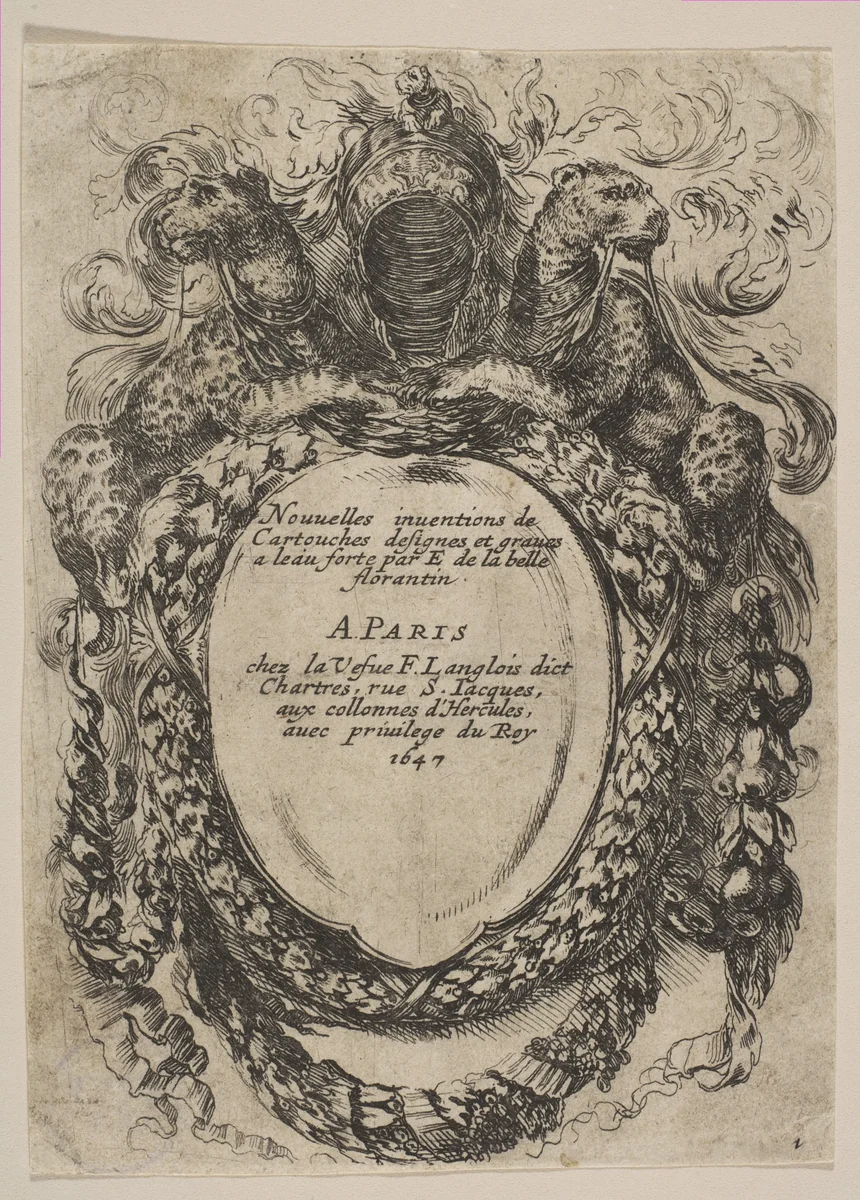 Nouuelles inuentions de
Cartouches designes et graues
a leau forte par E de la belle
florantin.
A. PARIS
chez la Vefue F. Langlois dict
Chartres, rue S. Iacques,
aux collonnes d'Hercules,
auec priuilege du Roy
1647
1